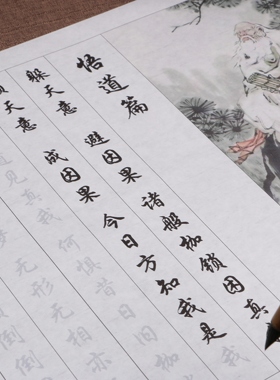 悟道篇
躲天意 避因果 诸般枷锁困真
天意 成因果 今日方知我是
道见真我 何惧昔日
无形无相亦